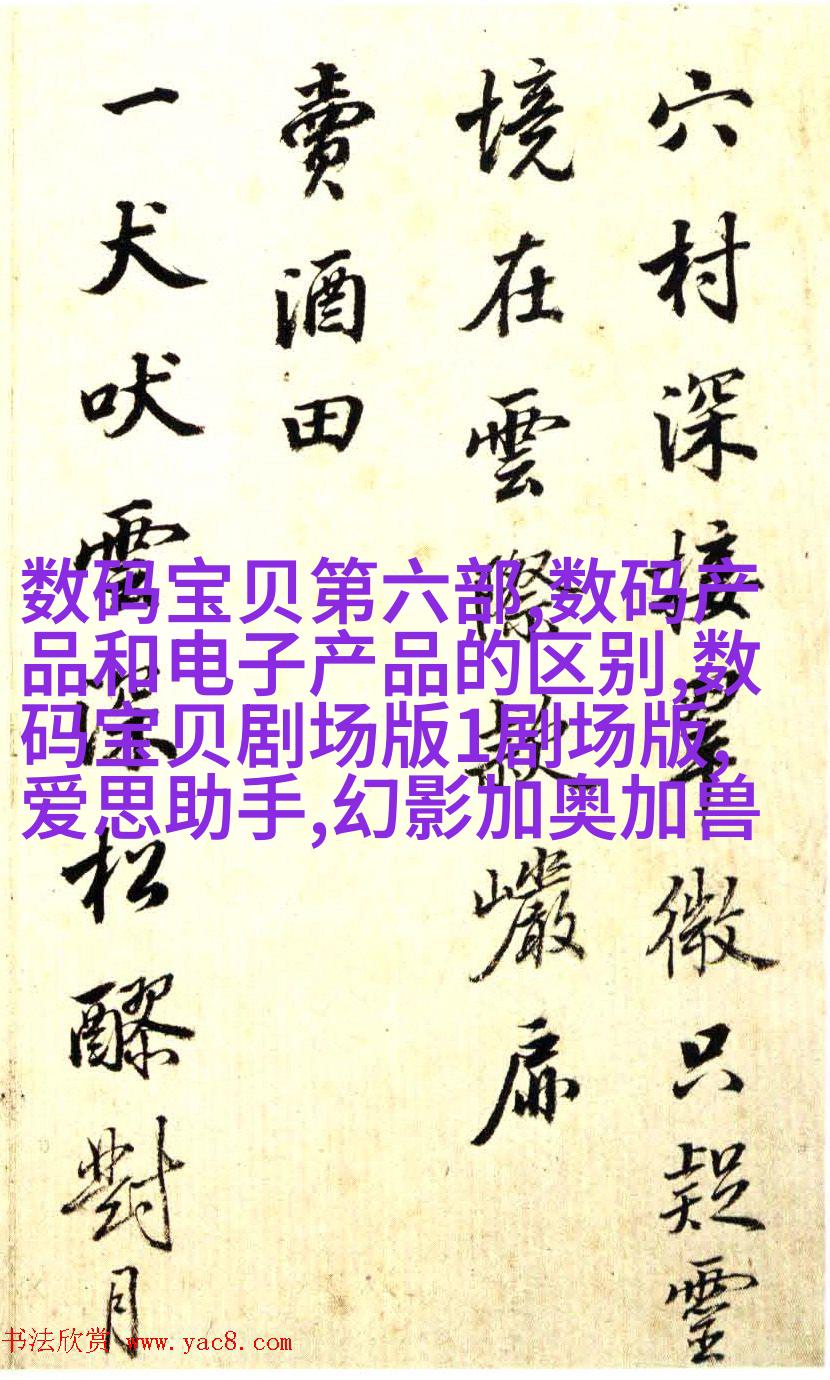 穴村深接翠微只疑靈
境在雲際款巖扉
賣酒田
一犬吠雲深松醪對月
数码宝贝第六部,数码产
品和电子产品的区别,数
码宝贝剧场版1剧场版,
爱思助手,幻影加奥加兽
书法欣赏 www.yac8.com